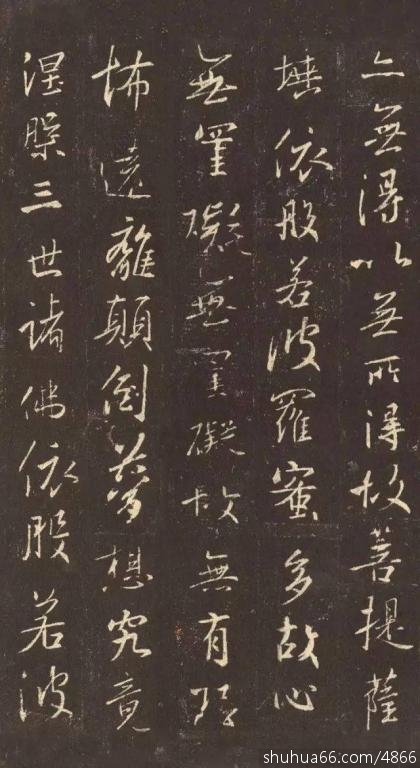 亦無得以無所得故菩提薩
埵依般若波羅蜜多故心
無罣礙無罣礙故無有恐
怖遠離顛倒夢想究竟
涅槃三世諸佛依般若波
shuhua66.com/4866